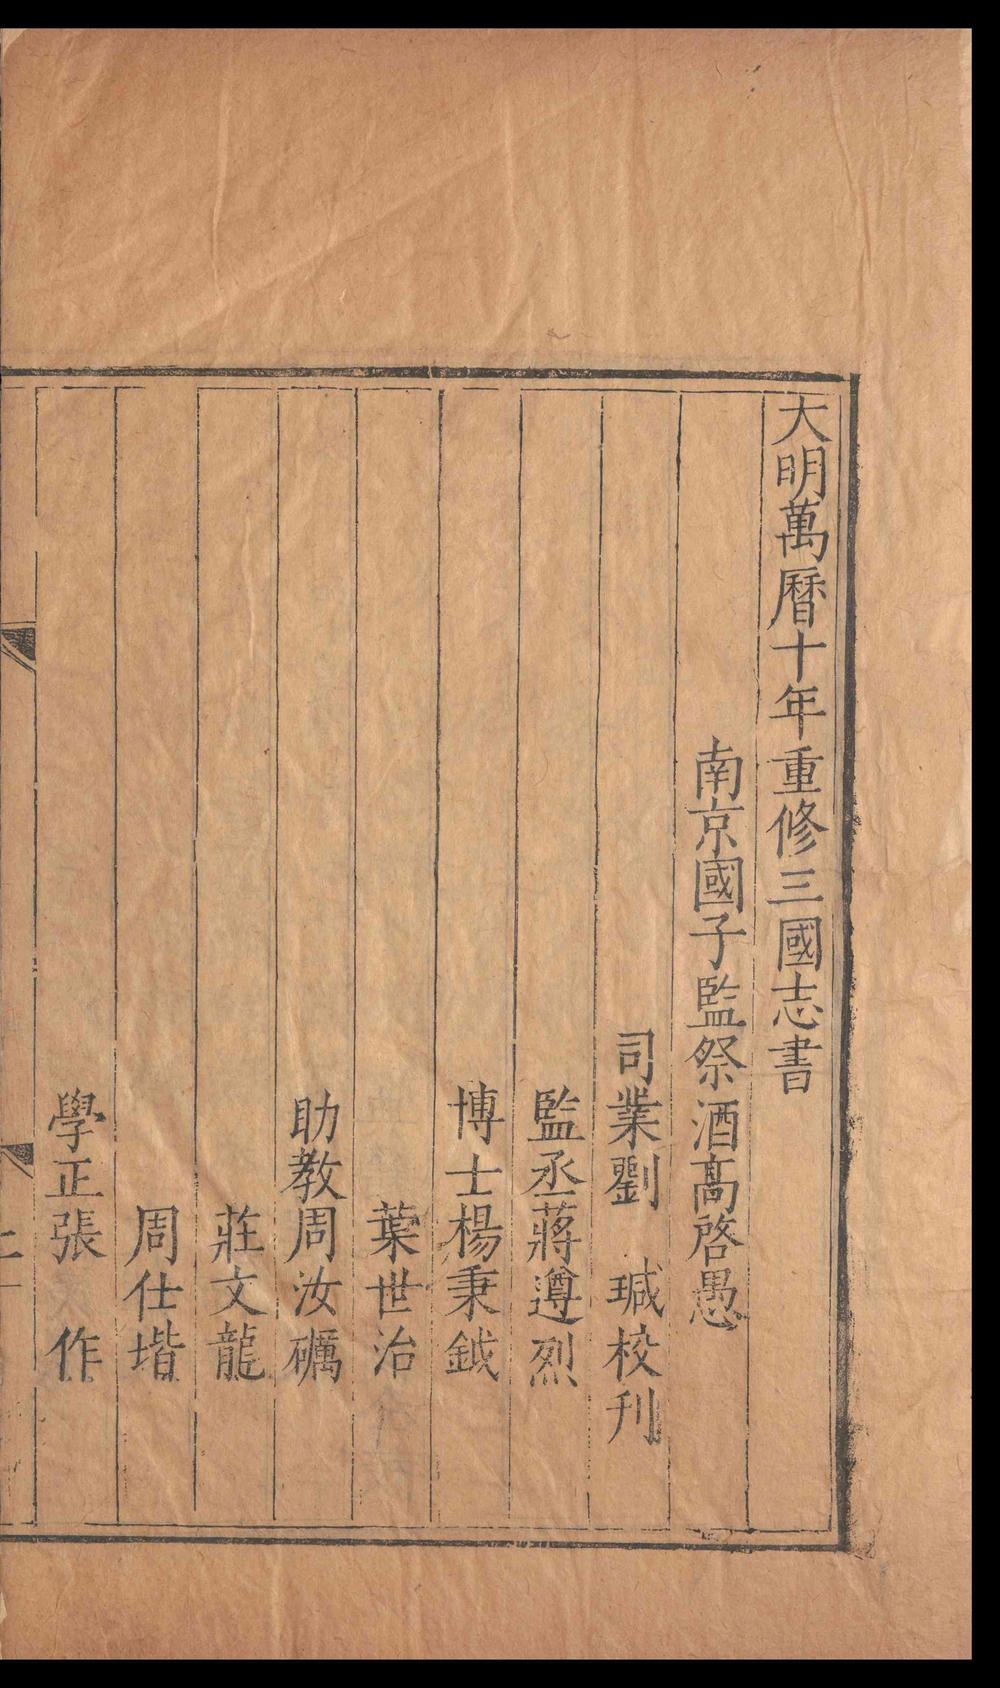 大明萬曆十年重修三國志書
南京國子監祭酒高啓愚
司業劉　瑊校刊
監丞蔣遵烈
博士楊秉鉞
葉世治
助教周汝礪
莊文龍
周仕堦
學正張　作